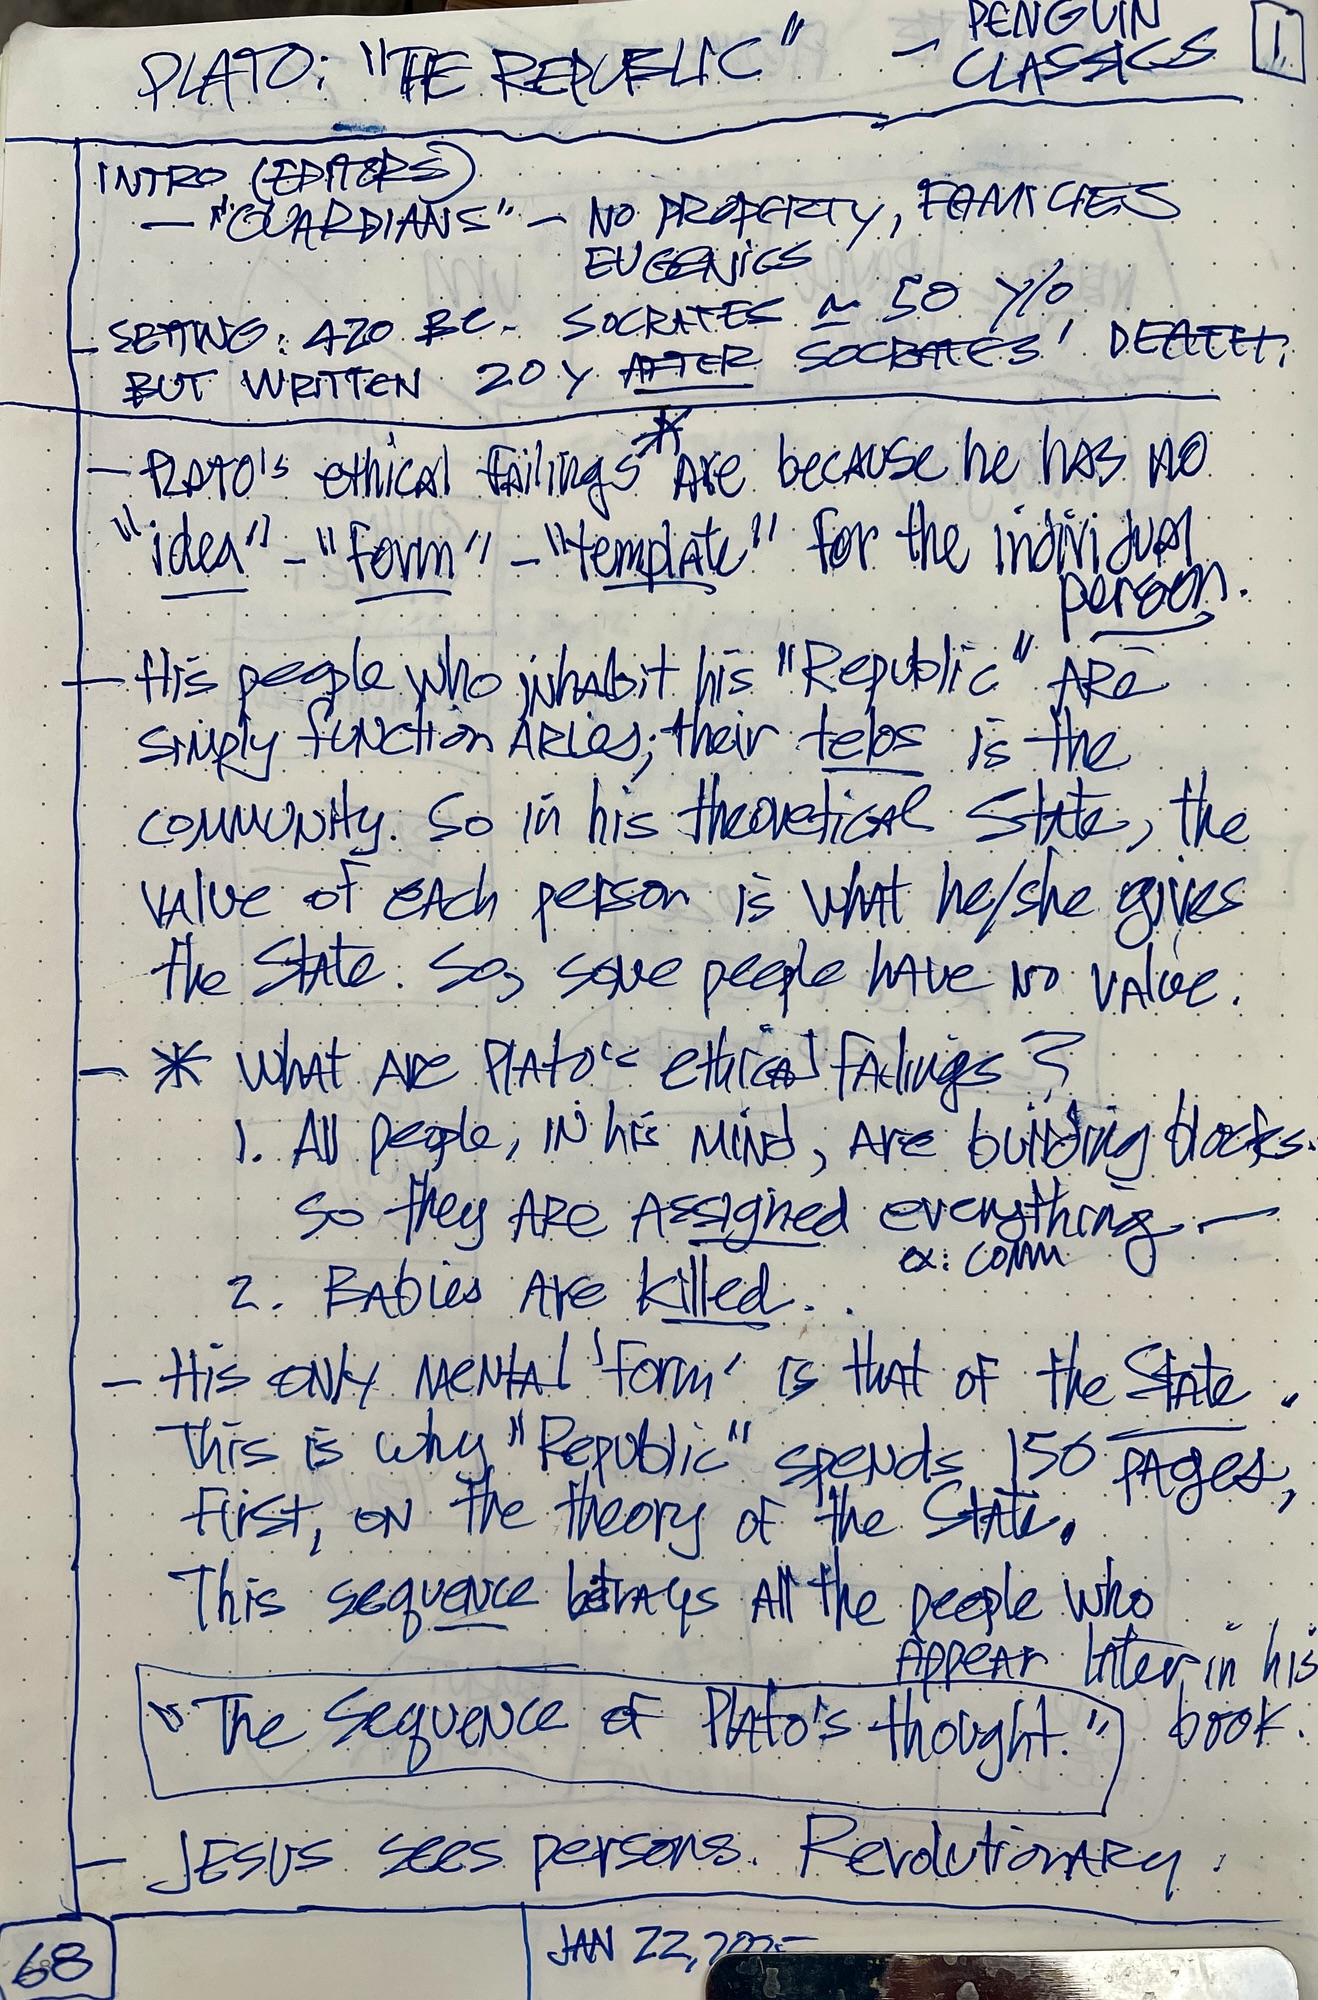 PLATO: "THE REPUBLIC" – PENGUIN CLASSICS
1
INTRO (EDITORS)
– "GUARDIANS" – NO PROPERTY, FAMILIES
EUGENICS
– SETTING: 420 BC. SOCRATES ≈ 50 Y/O
BUT WRITTEN 20 Y AFTER SOCRATES' DEATH.
– PLATO's ethical failings* are because he has no
"idea" – "form" – "template" for the individual
person.
– His people who inhabit his "Republic" are
simply functionaries; their telos is the
community. So in his theoretical State, the
value of each person is what he/she gives
the State. So, some people have no value.
– * What are Plato's ethical failings?
1. All people, in his mind, are building blocks.
So they are assigned everything –
ex: comm
2. Babies are killed..
– His only mental 'form' is that of the State.
This is why "Republic" spends 150 pages,
first, on the theory of the State.
This sequence betrays all the people who
appear later in his
book.
"The Sequence of Plato's thought."
– JESUS sees persons. Revolutionary.
68
JAN 22,